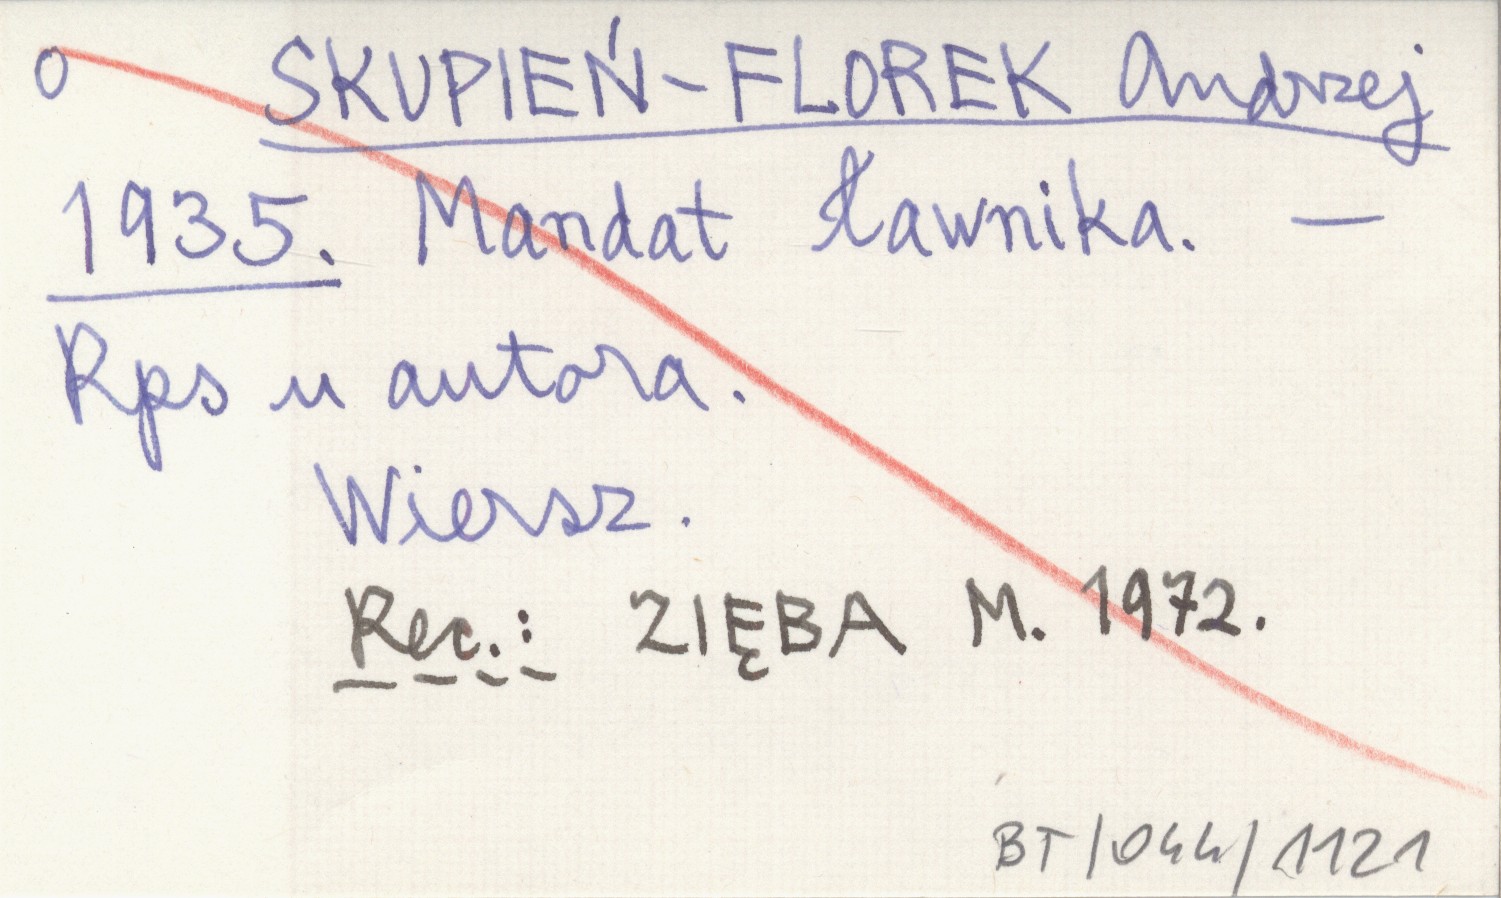 o SKUPIEŃ-FLOREK Andrzej
1935. Mandat ławnika. —
Rps u autora.
Wiersz.
Rec.: ZIĘBA M. 1972.
BT/044/1121